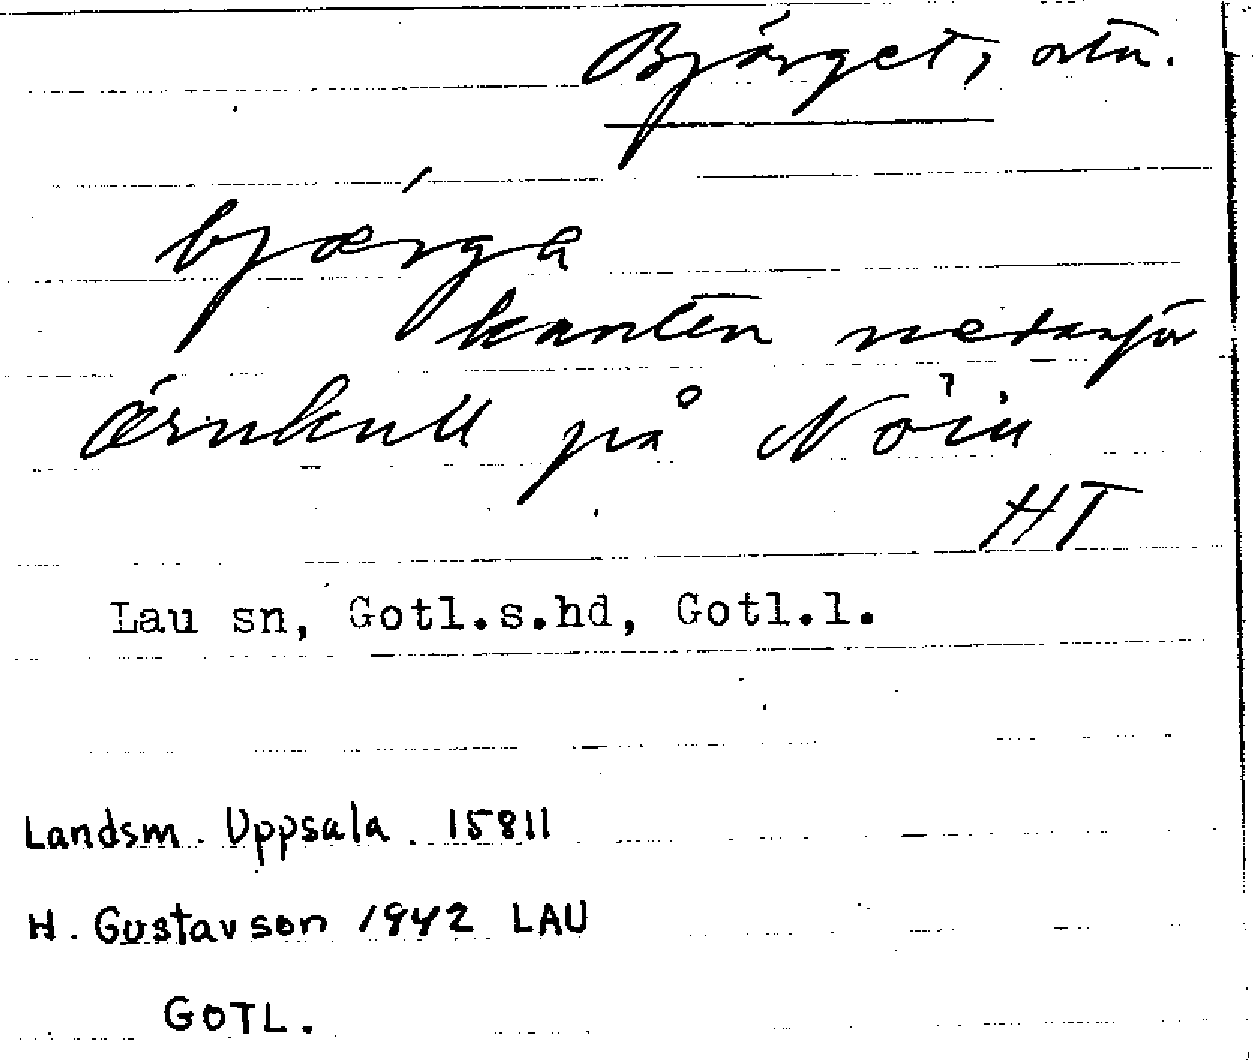 Bjärget, ortn.
bjærga
kanten nedanför
ærnkull på Nöiu
HT
Lau sn, Gotl.s.hd, Gotl.l.
Landsm. Uppsala. 15811
H. Gustavson 1942 LAU
GOTL.